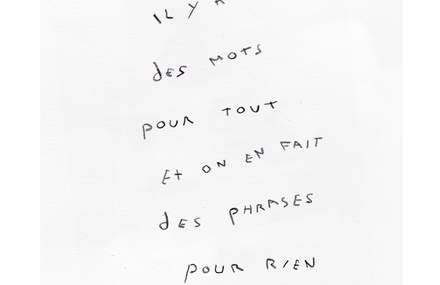 IL Y A
dES MOTS
POUR TOUT
Et ON EN FAIT
dES PHRASES
POUR RIEN